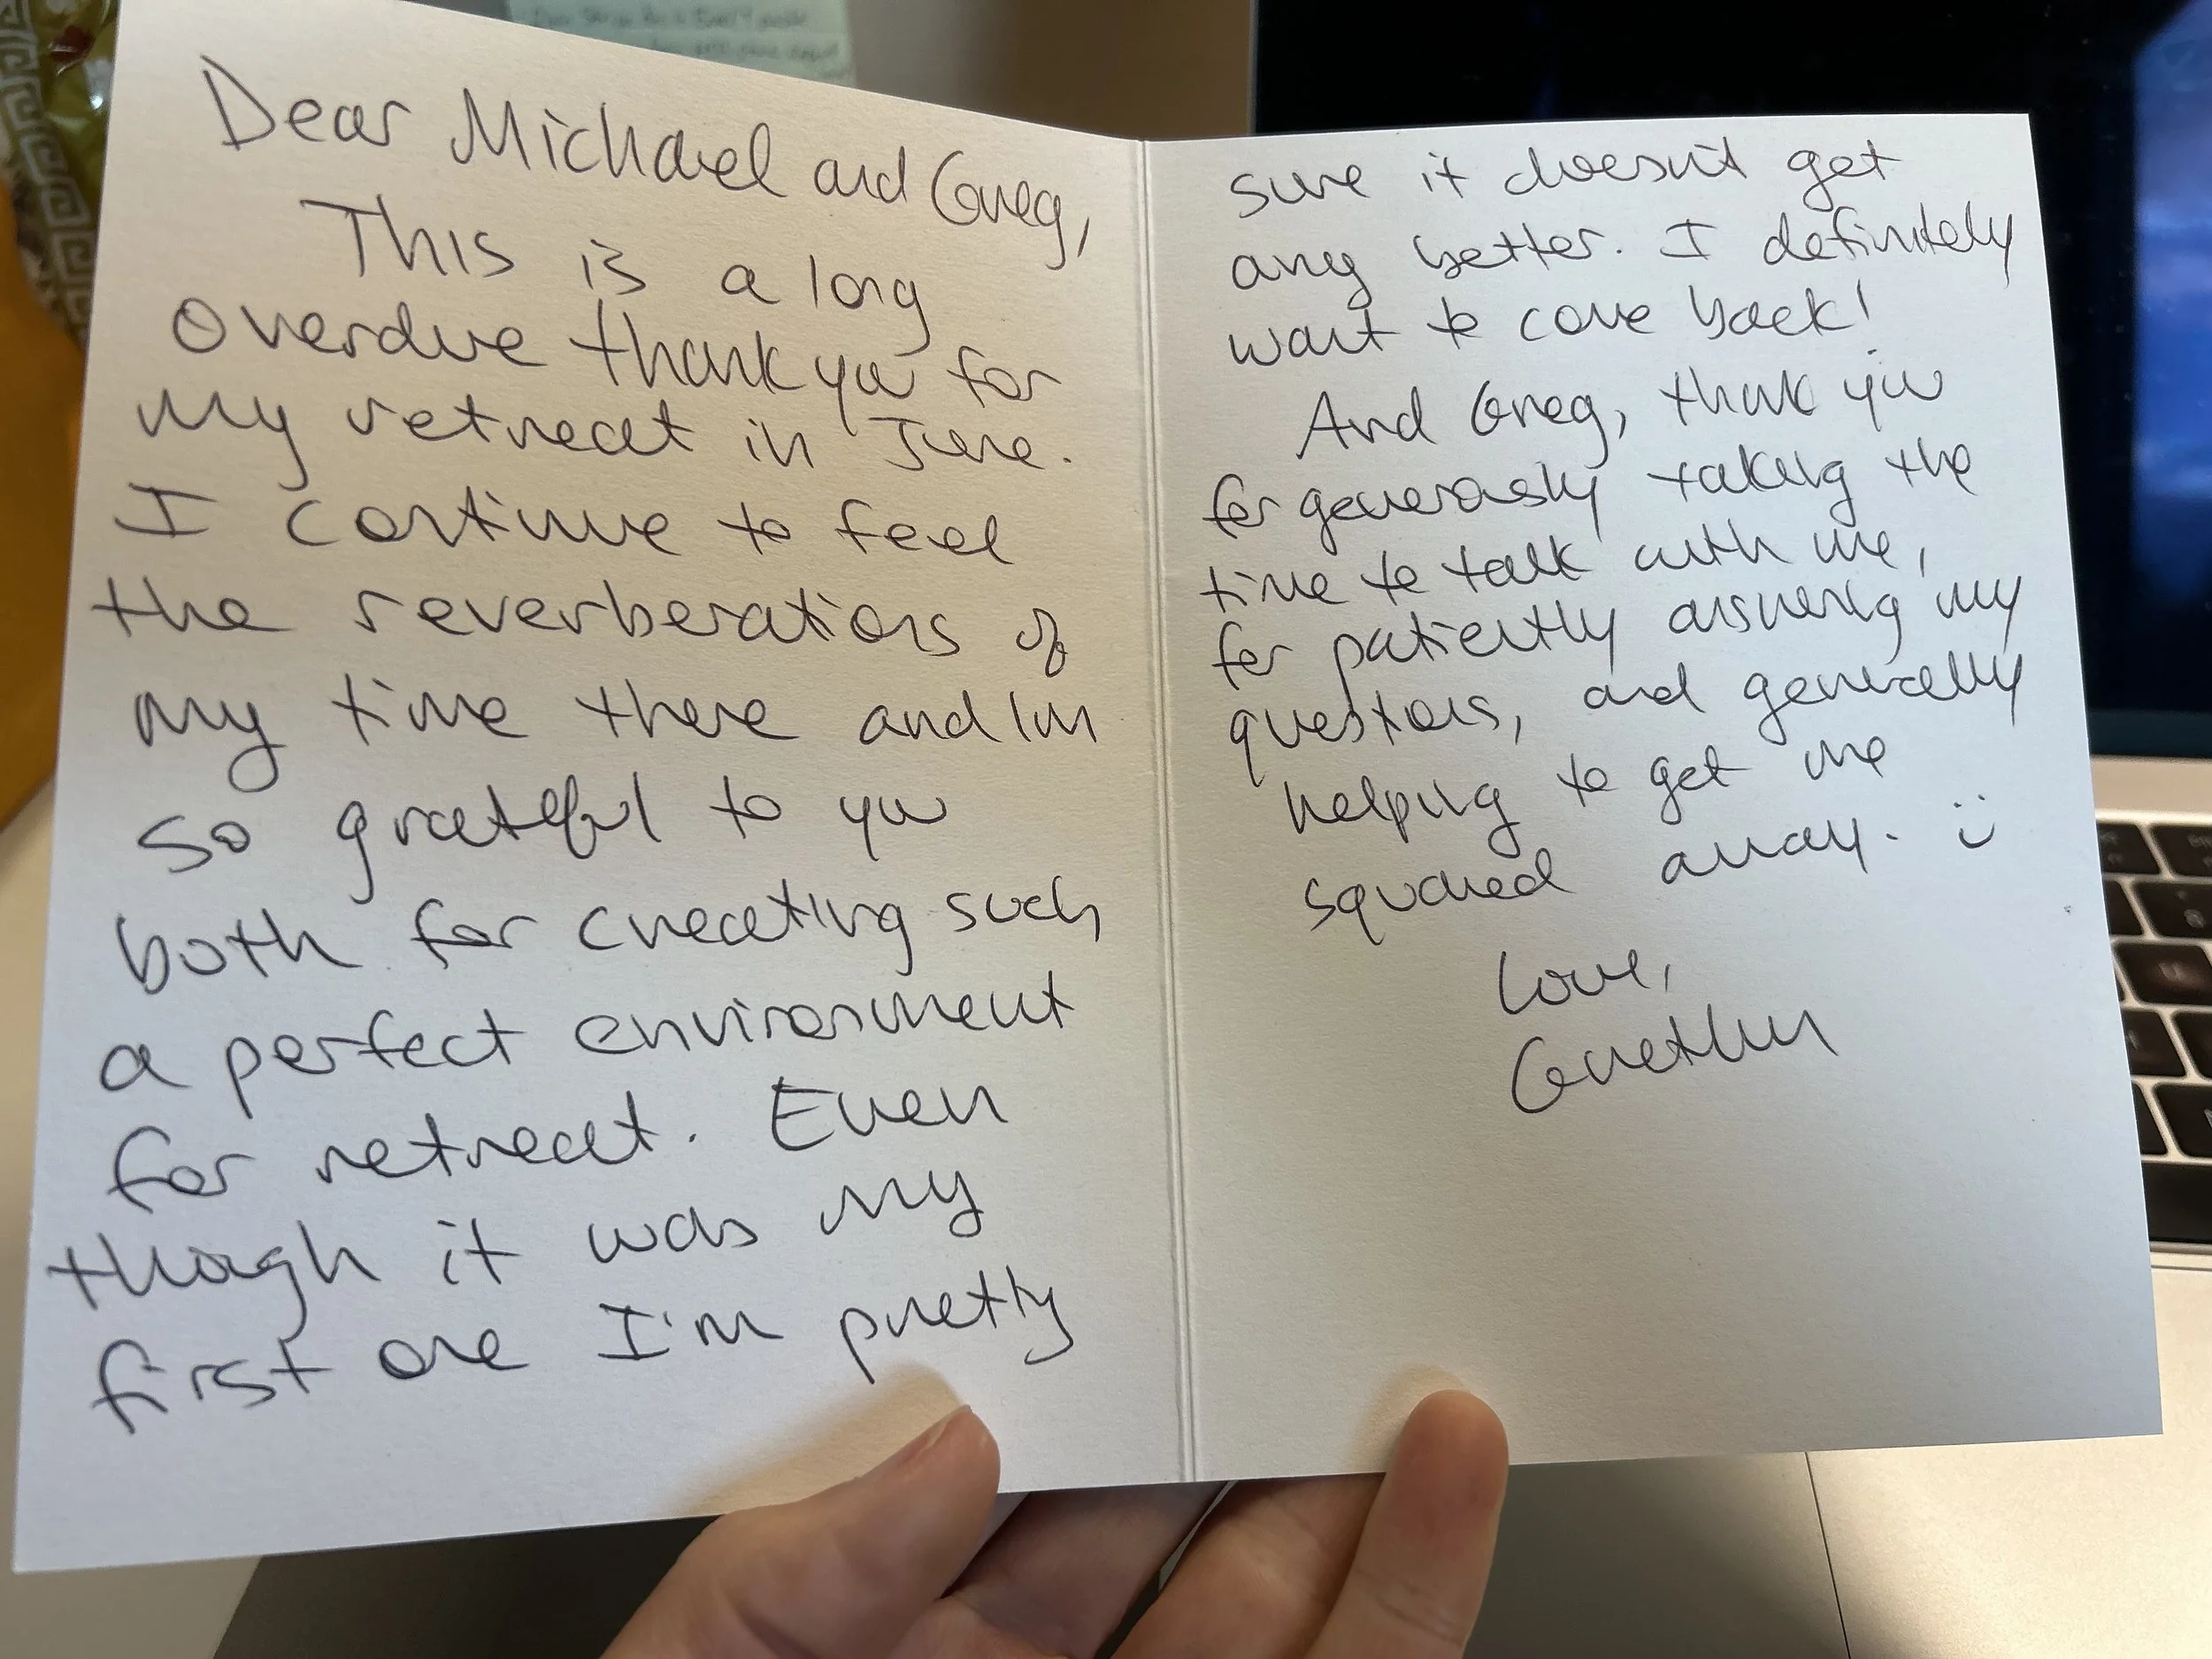 Dear Michael and Greg,
This is a long
overdue thank you for
my retreat in June.
I continue to feel
the reverberations of
my time there and I'm
so grateful to you
both for creating such
a perfect environment
for retreat. Even
though it was my
first one I'm pretty
sure it doesn't get
any better. I definitely
want to come back!
And Greg, thank you
for generously taking the
time to talk with me,
for patiently answering my
questions, and generally
helping to get me
squared away. :)
Love,
Gretchen